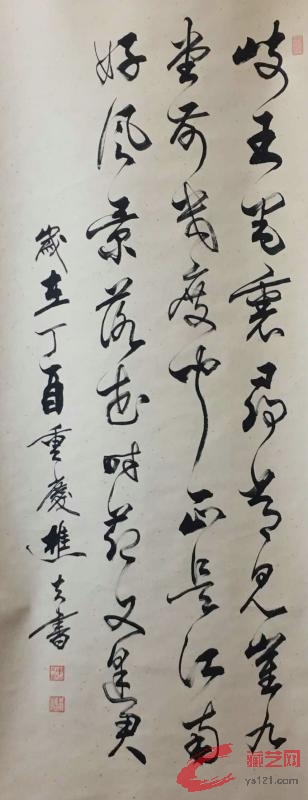 岐王宅裏尋常見崔九
堂前幾度聞正是江南
好風景落花時節又逢君
歲在丁酉重慶樵夫書
藏艺网
ys121.com